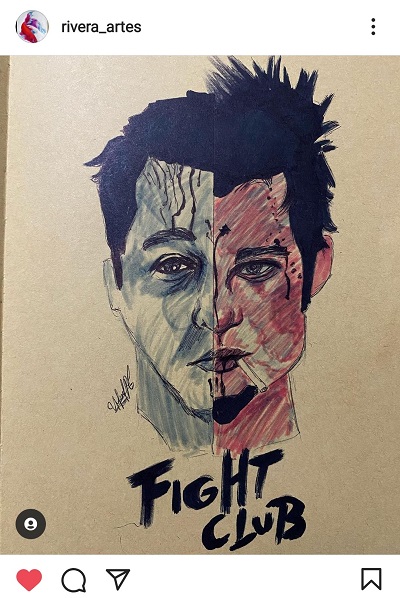 rivera_artes
FIGHT
CLUB